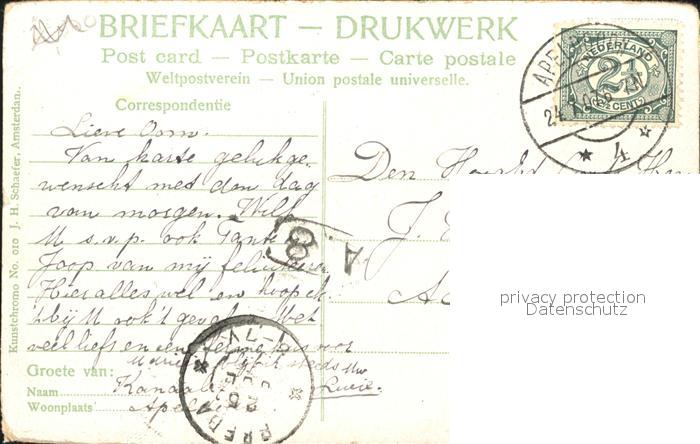 BRIEFKAART — DRUKWERK
Post card — Postkarte — Carte postale
Weltpostverein — Union postale universelle.
NEDERLAND
2½
2½ CENT 2½
4
Correspondentie
Lieve Oom.
Van harte gelukge-
wenscht met den dag
van morgen. Wilt
U s.v.p. ook Tante
Joop van mij feliciteeren
Hier alles wel en hoop ik
't bij U ook 't geval. Met
veel liefs en een
steeds Uw
Lucie.
Den
J.
A 8
BREDA
Groete van:
Naam Kanaal
Woonplaats Apel
Kunstchromo No. 010 J. H. Schaefer, Amsterdam.
privacy protection
Datenschutz